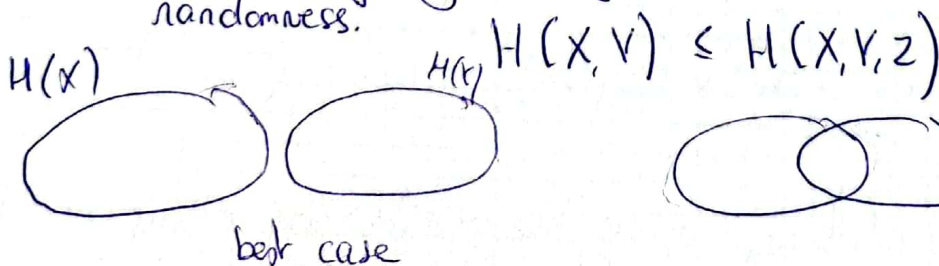 randomness.
H(X) H(Y) H(X,Y) ≤ H(X,Y,Z)
best case